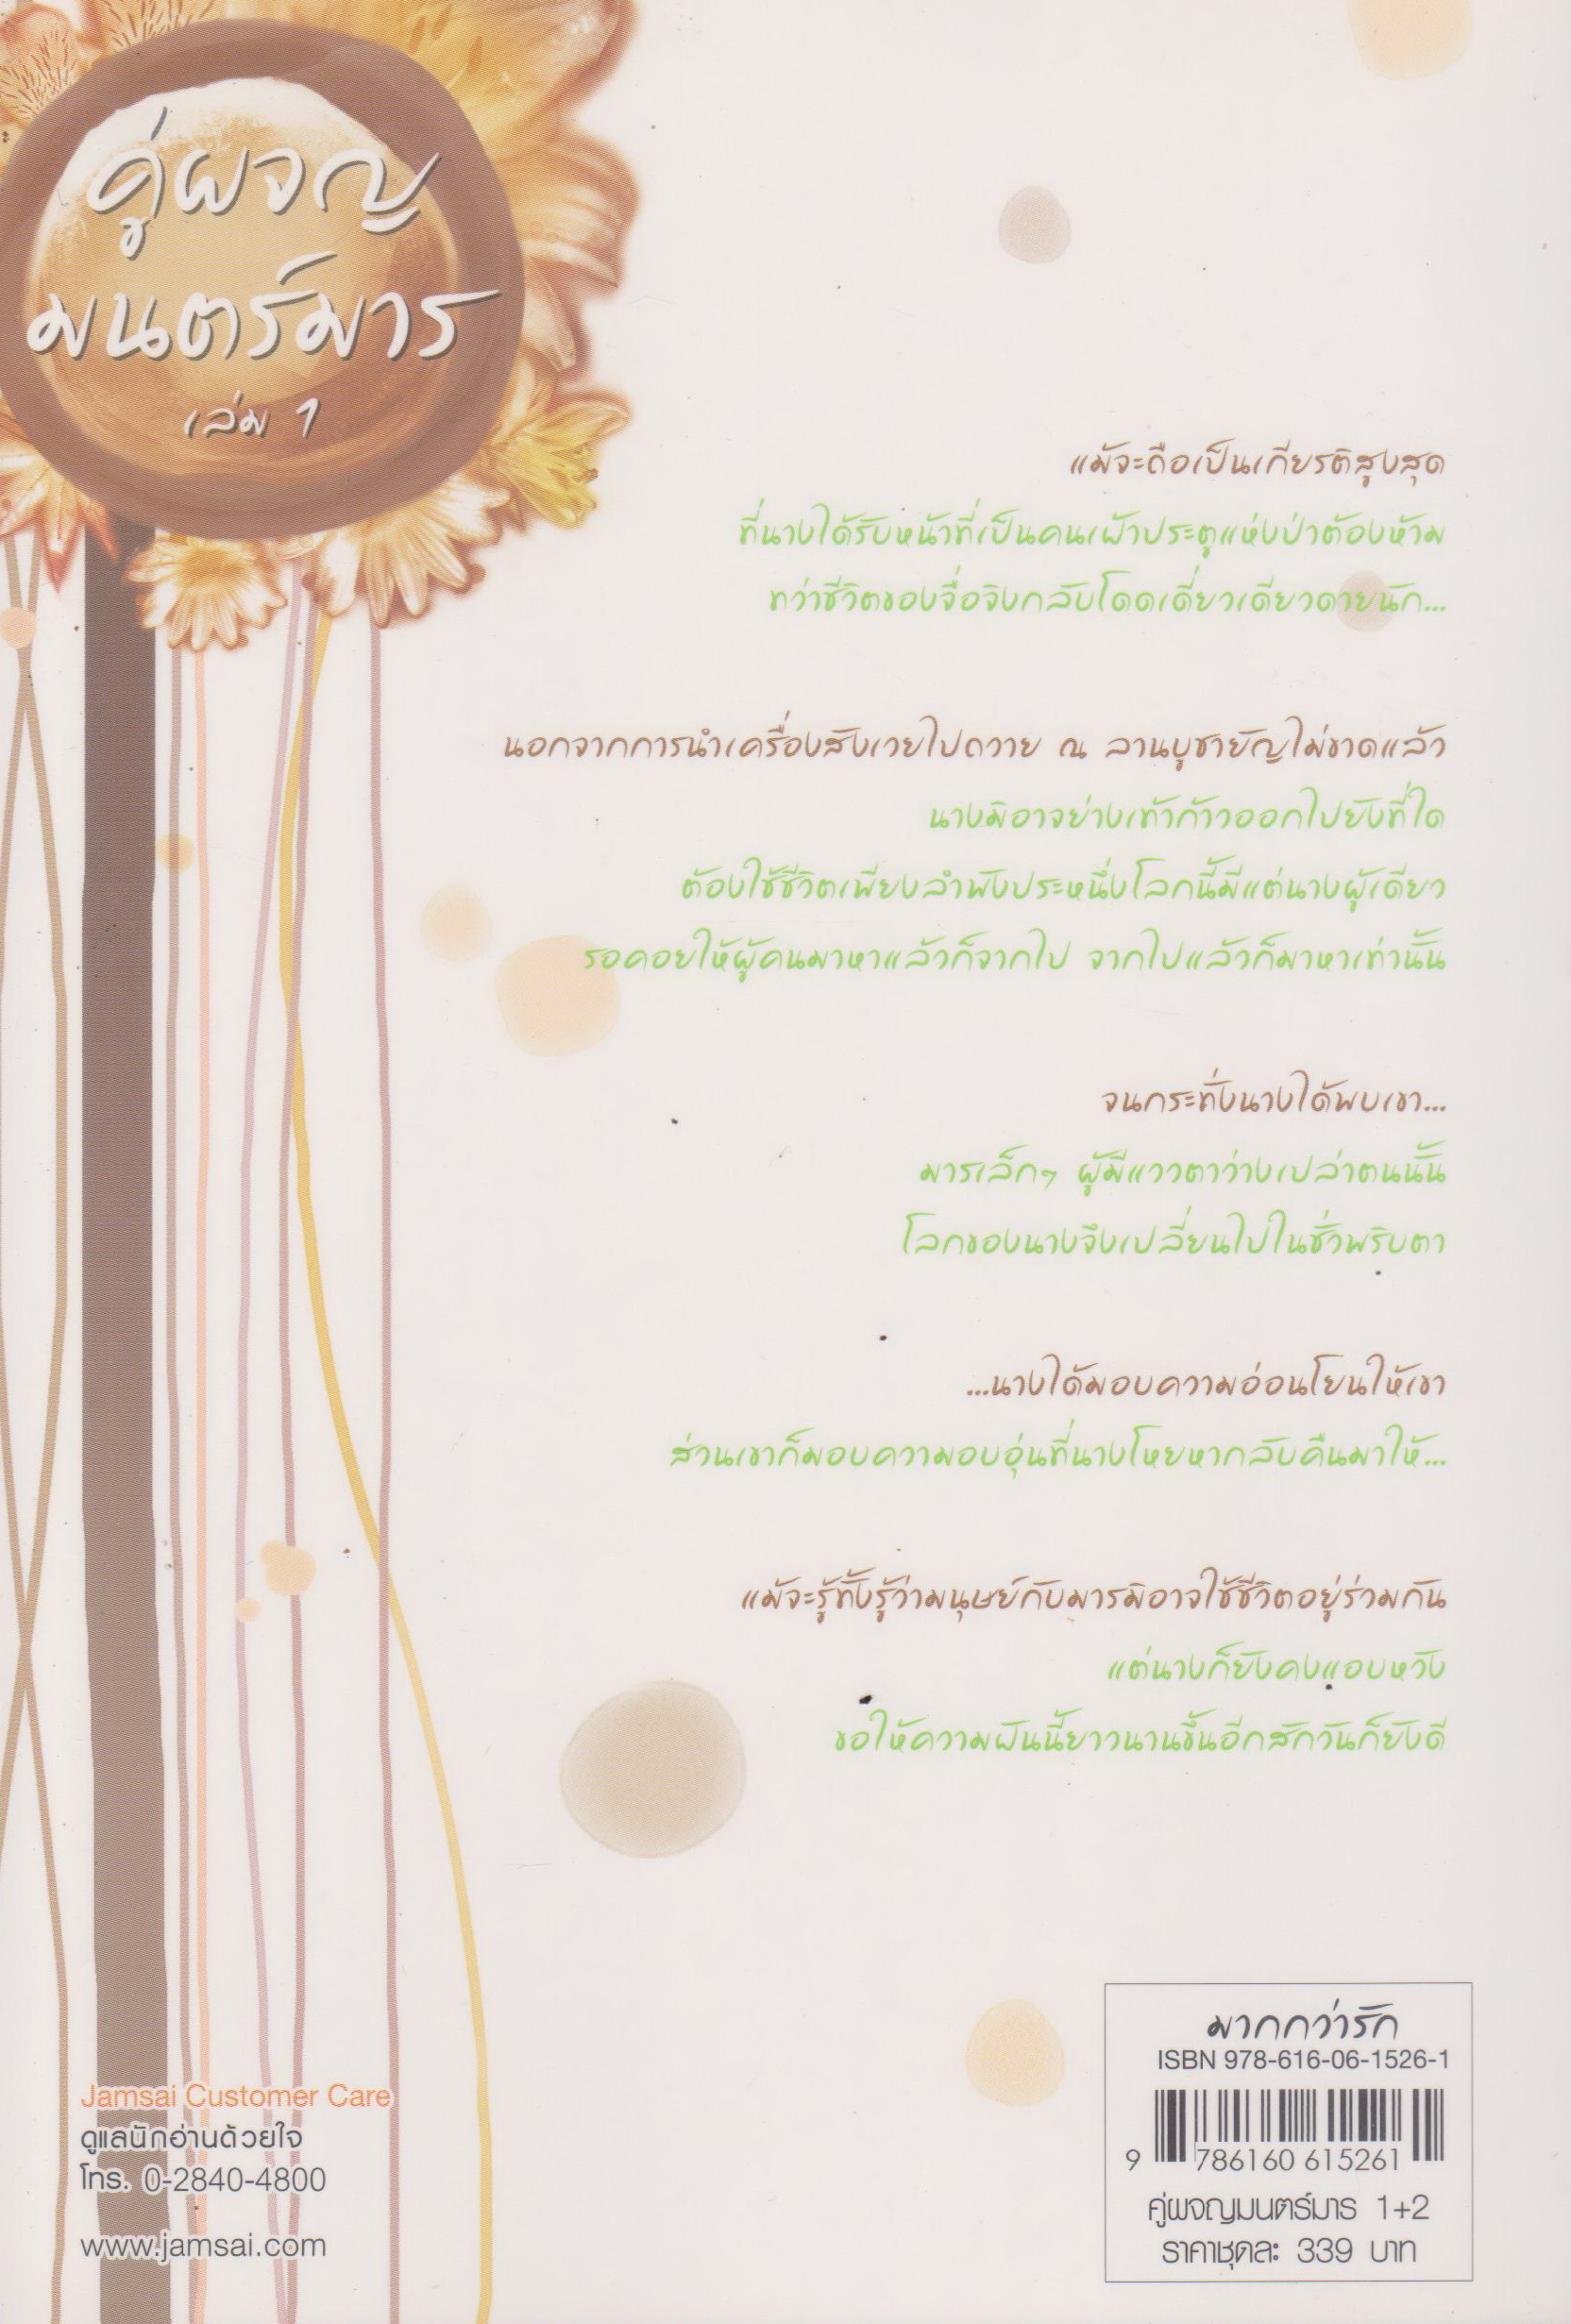 คู่ผจญ
มนตร์มาร
เล่ม 1
แม้จะถือเป็นเกียรติสูงสุด
ที่นางได้รับหน้าที่เป็นคนเฝ้าประตูแห่งป่าต้องห้าม
ทว่าชีวิตของจื่อจิงกลับโดดเดี่ยวเดียวดายนัก...
นอกจากการนำเครื่องสังเวยไปถวาย ณ ลานบูชายัญไม่ขาดแล้ว
นางมิอาจย่างเท้าก้าวออกไปยังที่ใด
ต้องใช้ชีวิตเพียงลำพังประหนึ่งโลกนี้มีแต่นางผู้เดียว
รอคอยให้ผู้คนมาหาแล้วก็จากไป จากไปแล้วก็มาหาเท่านั้น
จนกระทั่งนางได้พบเขา...
มารเล็กๆ ผู้มีแววตาว่างเปล่าตนนั้น
โลกของนางจึงเปลี่ยนไปในชั่วพริบตา
...นางได้มอบความอ่อนโยนให้เขา
ส่วนเขาก็มอบความอบอุ่นที่นางโหยหากลับคืนมาให้...
แม้จะรู้ทั้งรู้ว่ามนุษย์กับมารมิอาจใช้ชีวิตอยู่ร่วมกัน
แต่นางก็ยังคงแอบหวัง
ขอให้ความฝันนี้ยาวนานขึ้นอีกสักวันก็ยังดี
มากกว่ารัก
ISBN 978-616-06-1526-1
9 786160 615261
คู่ผจญมนตร์มาร 1+2
ราคาชุดละ 339 บาท
Jamsai Customer Care
ดูแลนักอ่านด้วยใจ
โทร. 0-2840-4800
www.jamsai.com